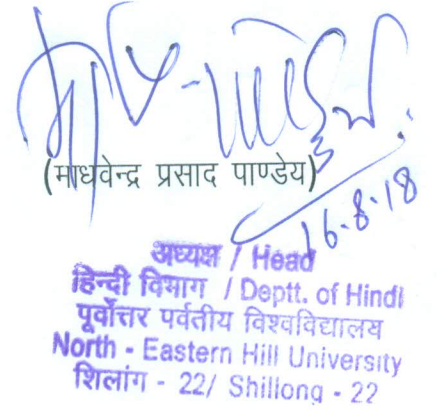 (माधवेन्द्र प्रसाद पाण्डेय)
16.8.18
अध्यक्ष / Head
हिन्दी विभाग / Deptt. of Hindi
पूर्वोत्तर पर्वतीय विश्वविद्यालय
North - Eastern Hill University
शिलांग - 22/ Shillong - 22